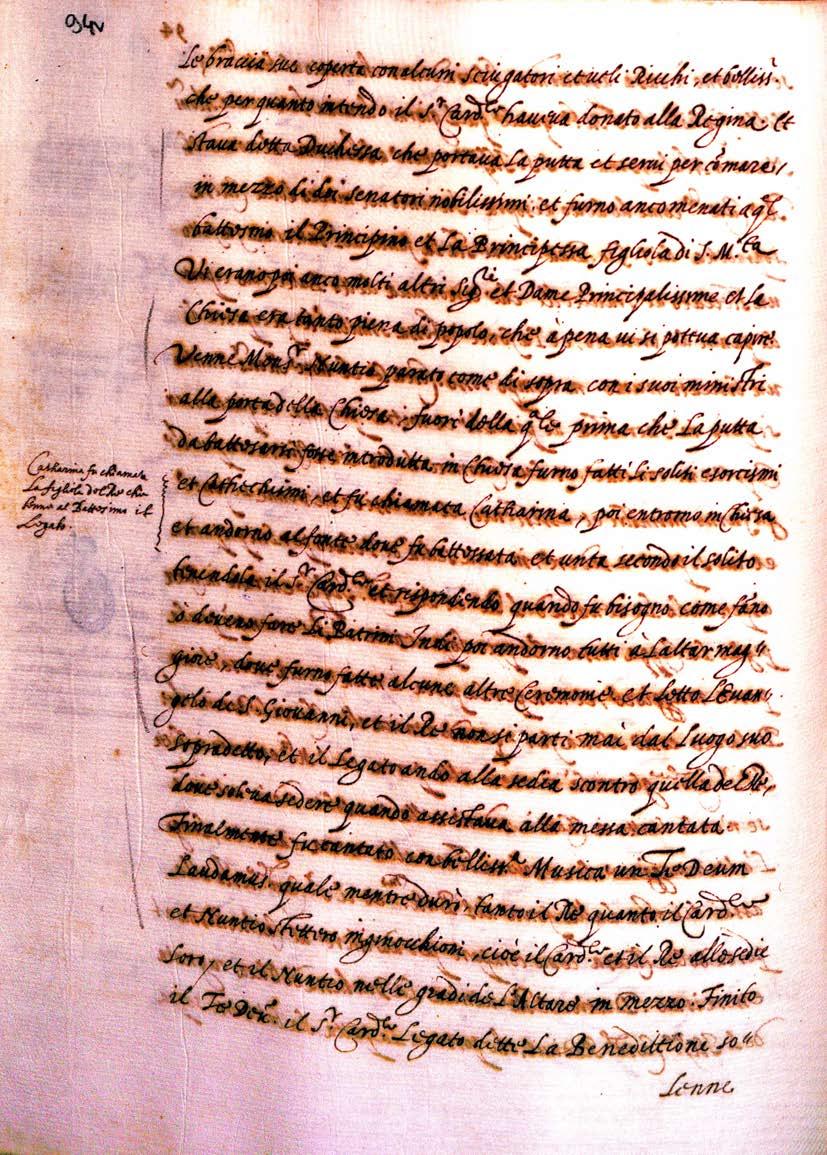 94v
Le braccia sue coperta con alcuni sciugatori et veli Ricchi, et belliss.
che per quanto intendo il S.r Card.le haveva donato alla Regina et
stava detta Duchessa che portava la putta et servì per comare,
in mezzo di doi senatori nobilissimi. et furno anco menati a q.l
battesmo il Principino et La Principessa figliola di S. M.tà
Vi erano poi anco molti altri Sig.ri et Dame Principalissime et La
Chiesa era tanto piena di popolo, che à pena vi si poteva capire
Venne Mons.r Nuntio parato come di sopra con i suoi ministri
alla porta della Chiesa, fuori della q.le prima che La putta
da battesarsi fosse introdutta in Chiesa furno fatti li soliti esorcismi
et Cathechismi, et fu chiamata Catharina, poi entrorno in Chiesa
et andorno al fonte dove fu battessata et unta secondo il solito
tenendola il S.r Card.le et rispondendo quando fu bisogno come fano
ò deveno fare Li Patrini Indi poi andorno tutti à L'altar mag=
giore, dove furno fatte alcune altre Ceremonie et letto L'Evan=
gelo di S. Giovanni, et il Re non si partì mai dal Luogo suo
sopradetto, et il Legato andò alla sedia scontro quella del Re,
dove soleva sedere quando assistava alla messa cantata.
Finalmente fu cantato con belliss.a Musica un Te Deum
Laudamus. quale mentre durò, tanto il Re quanto il Card.le
et Nuntio stettero inginocchioni, cioè il Card.le et il Re alle sedie
loro, et il Nuntio nelli gradi de L'Altare in mezzo. Finito
il Te Deu. il S.r Card.le Legato dette La Benedittione so=
lenne
Catharina fu chiamata
La figliola del Re che
tenne al Battesimo il
Legato.